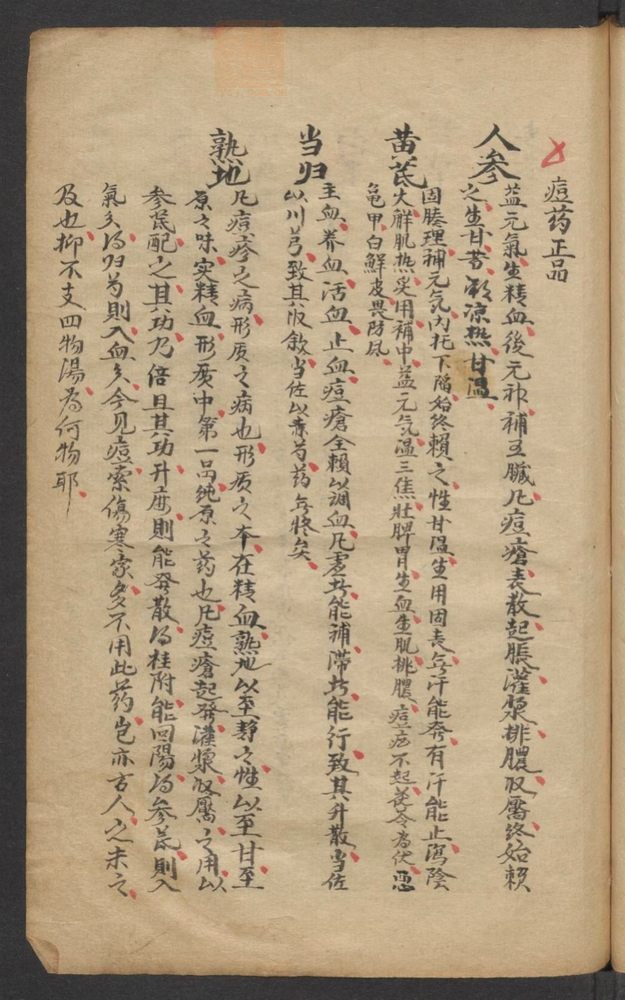 痘药正品
人参
益元氣生精血後元神補五臟凡痘瘡表散起脹灌漿排膿収靨終始頼
之生甘苦微凉熱甘温
黄芪
固腠理補元気内托下陷始終頼之性甘温生用固表無汗能發有汗能止瀉陰
火解肌热炙用補中益元气温三焦壮脾胃生血生肌排膿痘疮不起茯苓為使恶
龟甲白鮮皮畏防风
当归
主血养血活血止血痘瘡全賴以調血凡虚者能補滞者能行致其升散当佐
以川芎致其収斂当佐以赤芍药無悮矣
熟地
凡痘疹之病形质之病也形质之本在精血熟地以至静之性以至甘至
厚之味实精血形质中第一品纯厚之药也凡痘瘡起發灌漿収靨之用以
参芪配之其功乃倍且其功升麻則能發散得桂附能回陽得参芪則入
氣分得归芍則入血分今見痘家傷寒家多不用此药岂亦古人之未之
及也抑不支四物湯為何物耶